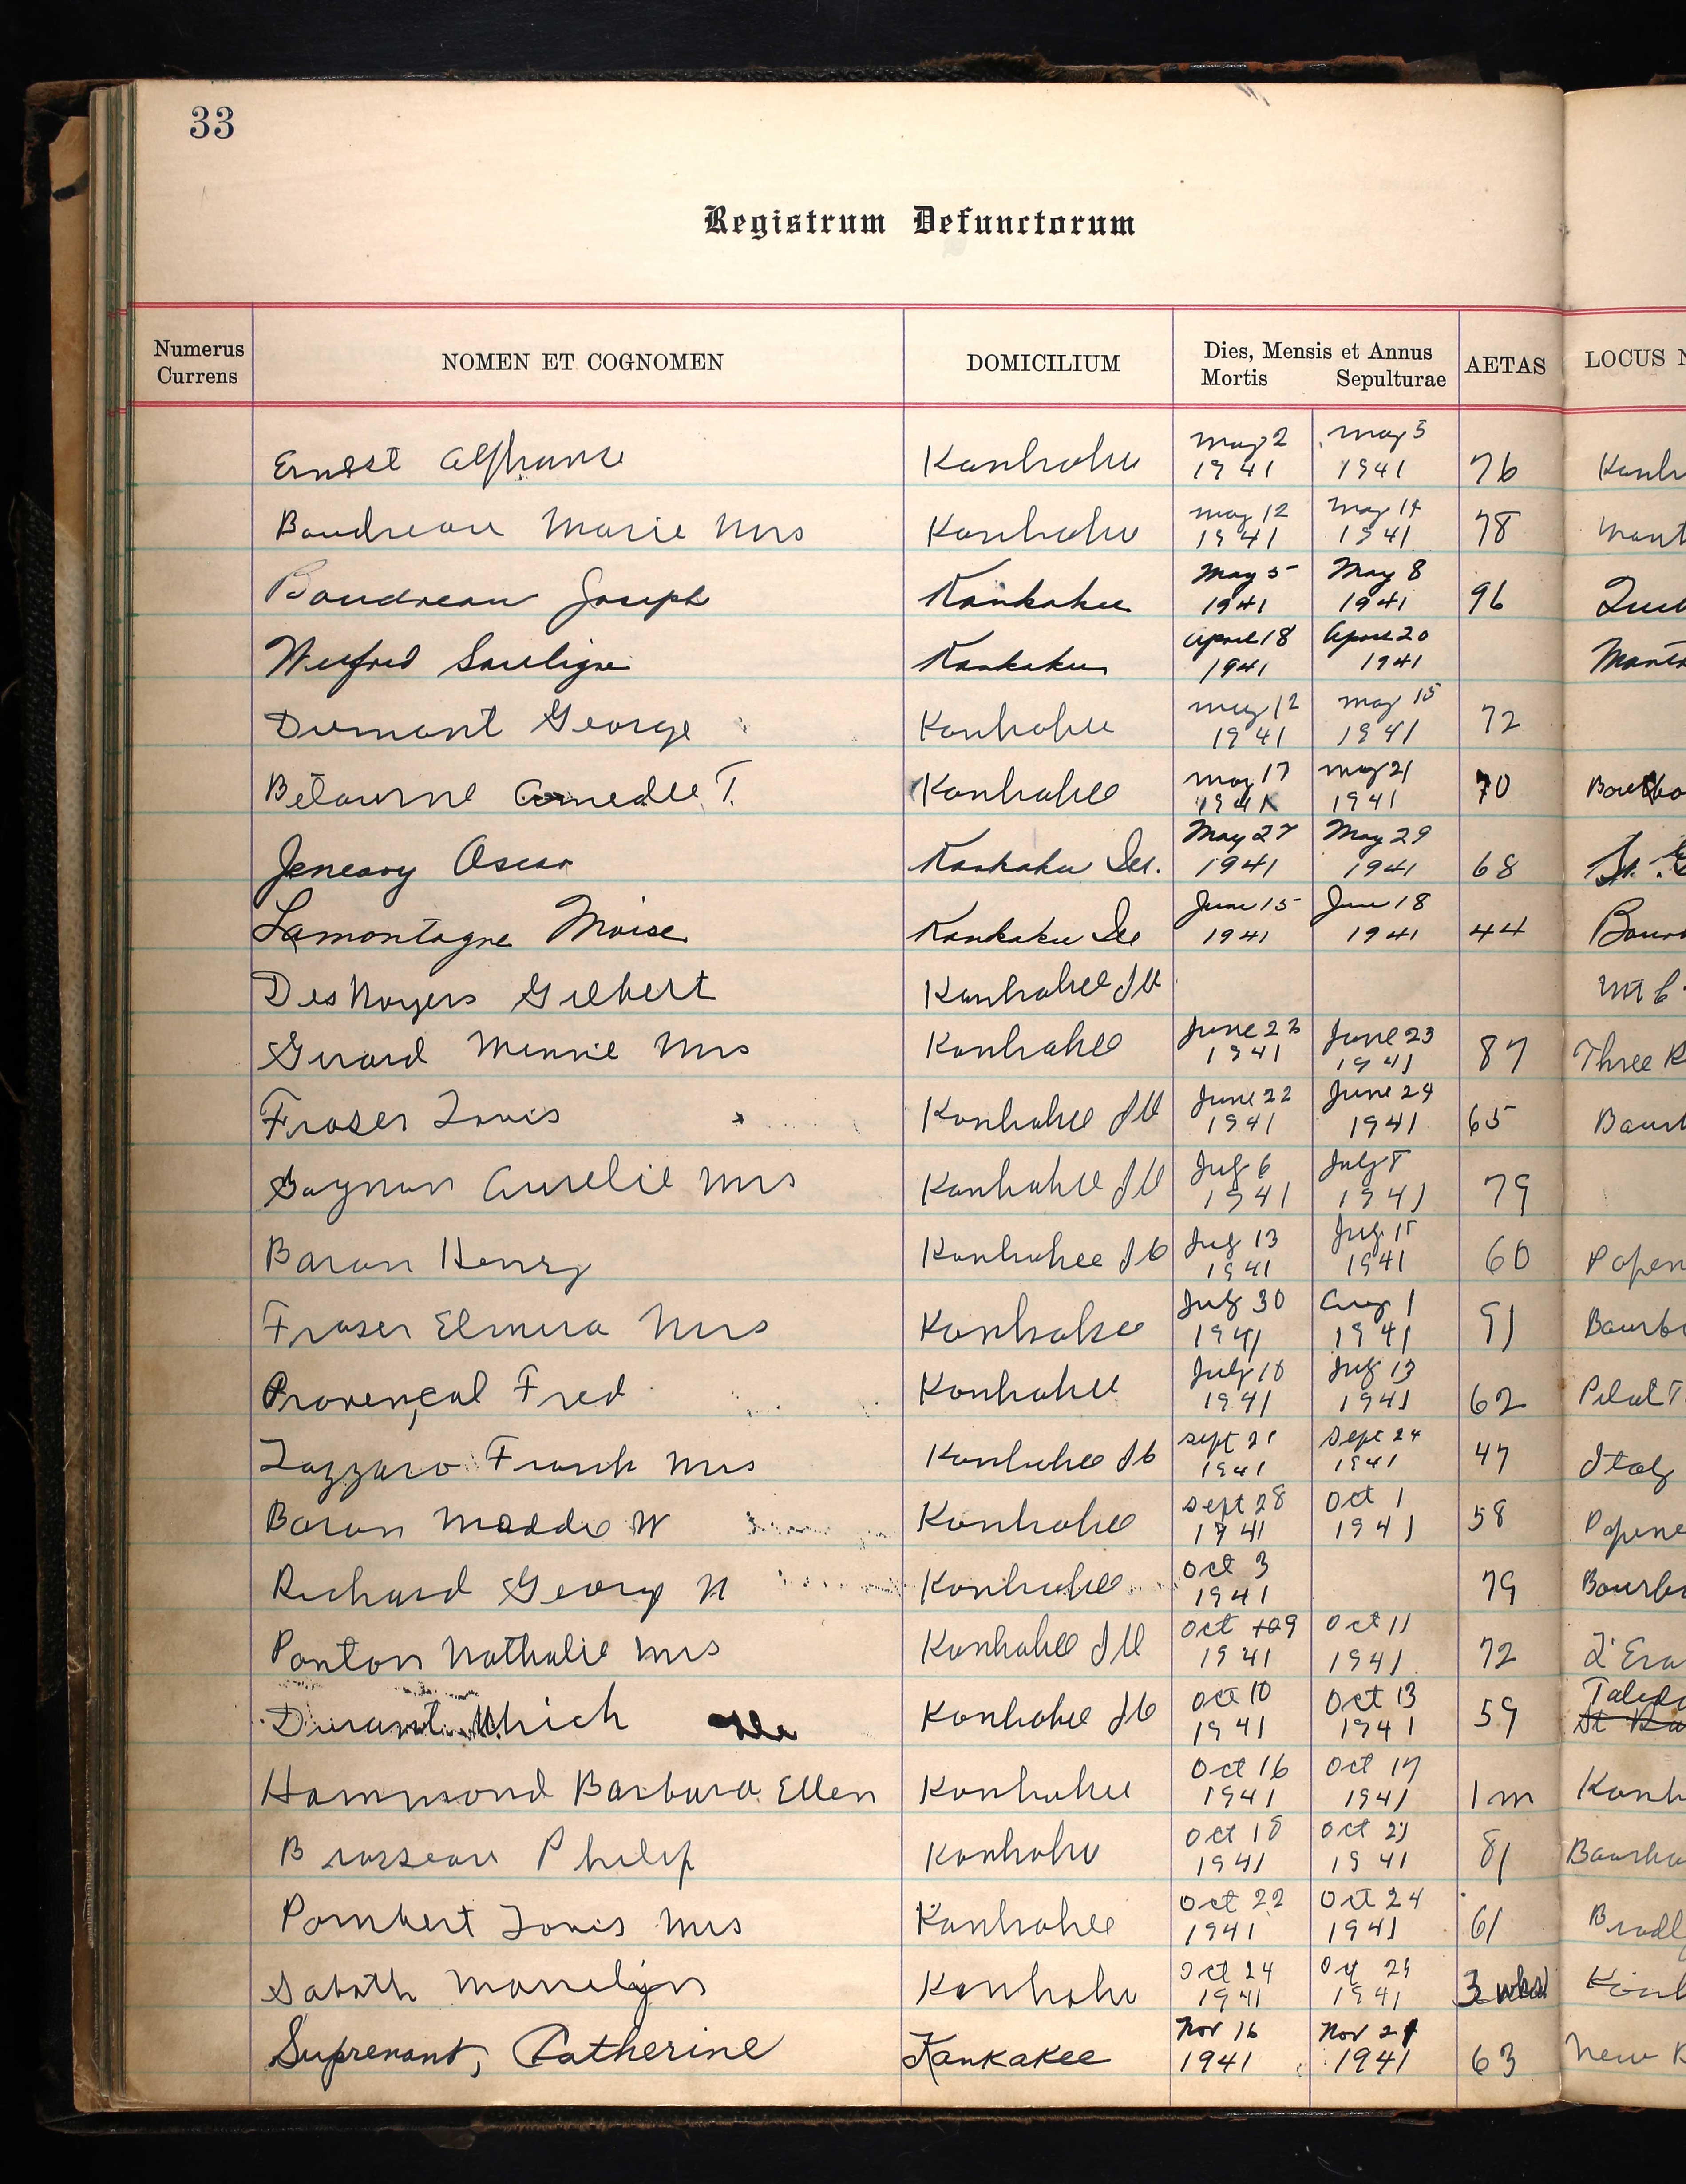 33
Registrum Defunctorum
Numerus Currens NOMEN ET COGNOMEN DOMICILIUM Dies, Mensis et Annus Mortis Sepulturae AETAS LOCUS N
Ernest Alphonse Kankakee May 2 1941 May 5 1941 76 Kank
Boudreau Marie Mrs Kankakee May 12 1941 May 14 1941 78 Mont
Boudreau Joseph Kankakee May 5 1941 May 8 1941 96 Queb
Wilfred Souligne Kankakee April 18 1941 April 20 1941 Mont
Dumont George Kankakee May 12 1941 May 15 1941 72
Betourne Amedee T. Kankakee May 17 1941 May 21 1941 70 Bourbo
Jeneary Oscar Kankakee Ill. May 27 1941 May 29 1941 68 St.
Lamontagne Moise Kankakee Ill June 15 1941 June 18 1941 44 Bour
DesNoyers Gilbert Kankakee Ill
Girard Minnie Mrs Kankakee June 1941 June 23 1941 87 Three R
Fraser Louis Kankakee Ill June 22 1941 June 24 1941 65 Bourb
Gagnon Aurelie Mrs Kankakee Ill July 6 1941 July 8 1941 79
Baron Henry Kankakee Ill July 13 1941 July 1941 60 Papen
Fraser Elmira Mrs Kankakee July 30 1941 Aug 1 1941 91 Bourbo
Provençal Fred Kankakee July 10 1941 July 13 1941 62 Pilot T
Lazzaro Frank Mrs Kankakee Ill Sept 21 1941 Sept 24 1941 47 Italy
Baron Maddie W Kankakee Sept 28 1941 Oct 1 1941 58 Papine
Richard George N Kankakee Oct 3 1941 79 Bourbo
Ponton Nathalie Mrs Kankakee Ill Oct 9 1941 Oct 11 1941 72 L'Era
Durant Kankakee Ill Oct 10 1941 Oct 13 1941 59 Toledo St
Hammond Barbara Ellen Kankakee Oct 16 1941 Oct 17 1941 1 m Kank
Brosseau Philip Kankakee Oct 18 1941 Oct 21 1941 81 Bourbo
Pombert Louis Mrs Kankakee Oct 22 1941 Oct 24 1941 61 Bradl
Saboth Marrilyn Kankakee Oct 24 1941 Oct 1941 3 wks Kank
Suprenant, Catherine Kankakee Nov 16 1941 Nov 1941 63 New B